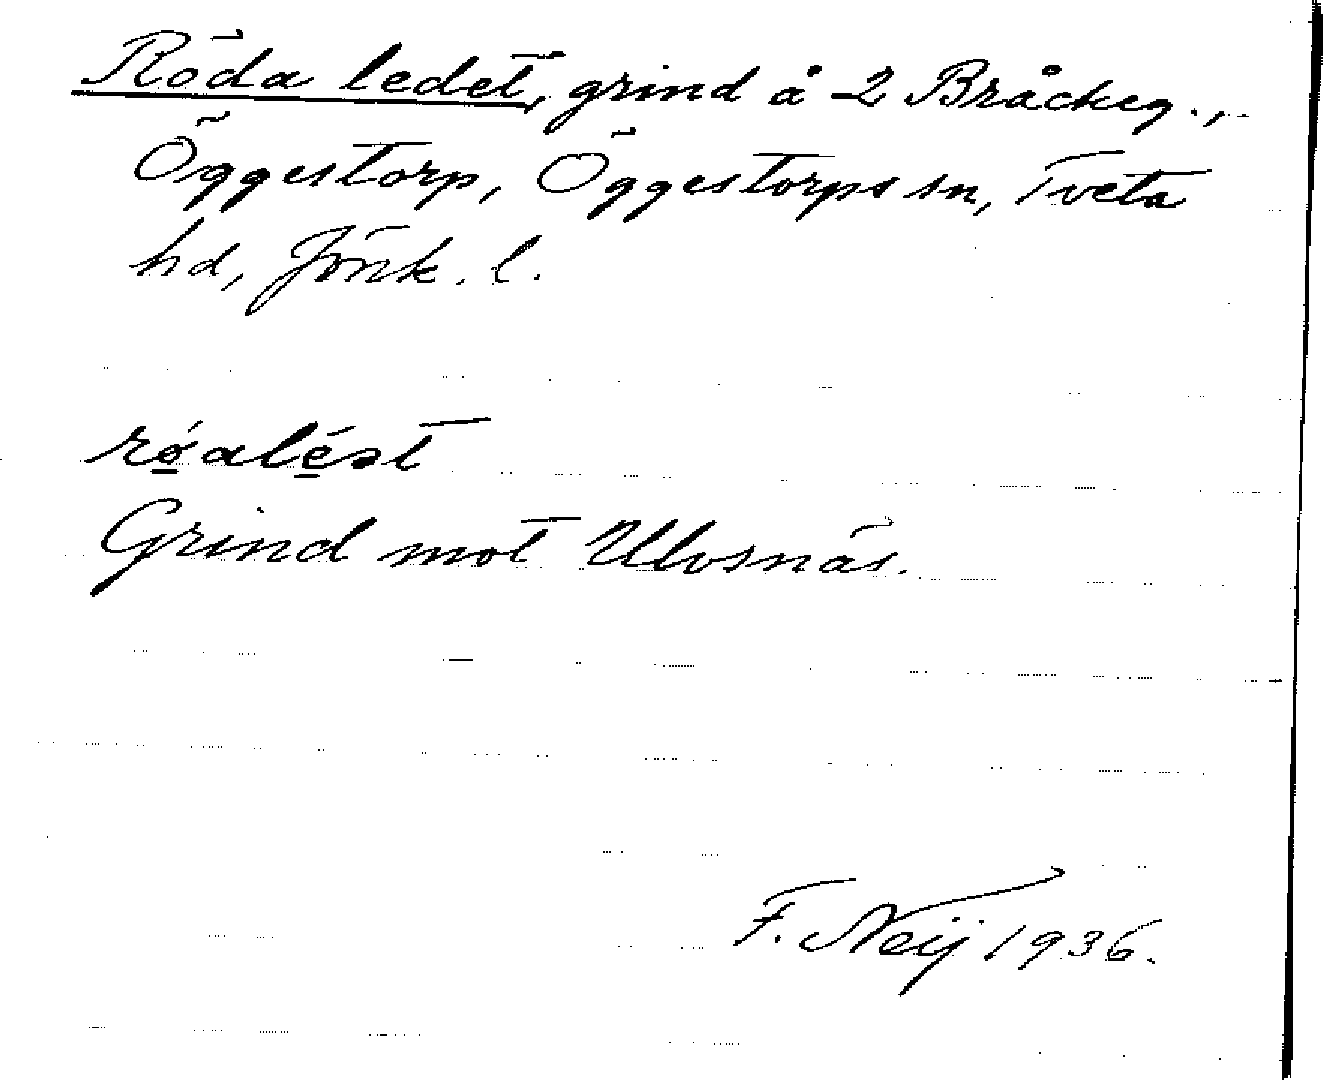 Röda ledet, grind å 2 Bråckeg.,
Öggestorp, Öggestorps sn, Tveta
hd, Jönk. l.
rǿ̱alé̱ət
Grind mot Ulvsnäs.
F. Neij 1936.